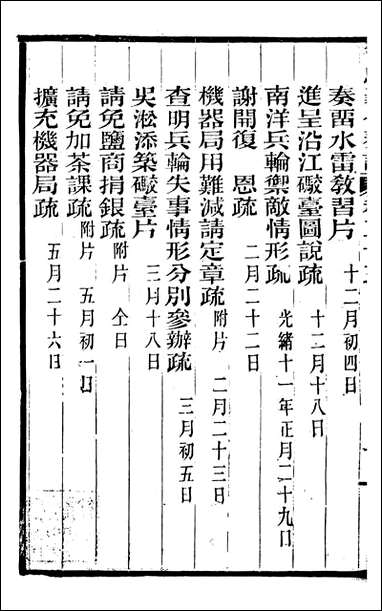 奏畱水雷敎習片 十二月初四日
進呈沿江礮臺圖說疏 十二月十八日
南洋兵輪禦敵情形疏 光緒十一年正月二十九日
謝開復 恩疏 二月二十二日
機器局用難減請定章疏 附片 二月二十三日
查明兵輪失事情形分別參辦疏 三月初五日
吳淞添築礮臺片 三月十八日
請免鹽商捐銀疏 附片 仝日
請免加茶課疏 附片 五月初一日
擴充機器局疏 五月二十六日